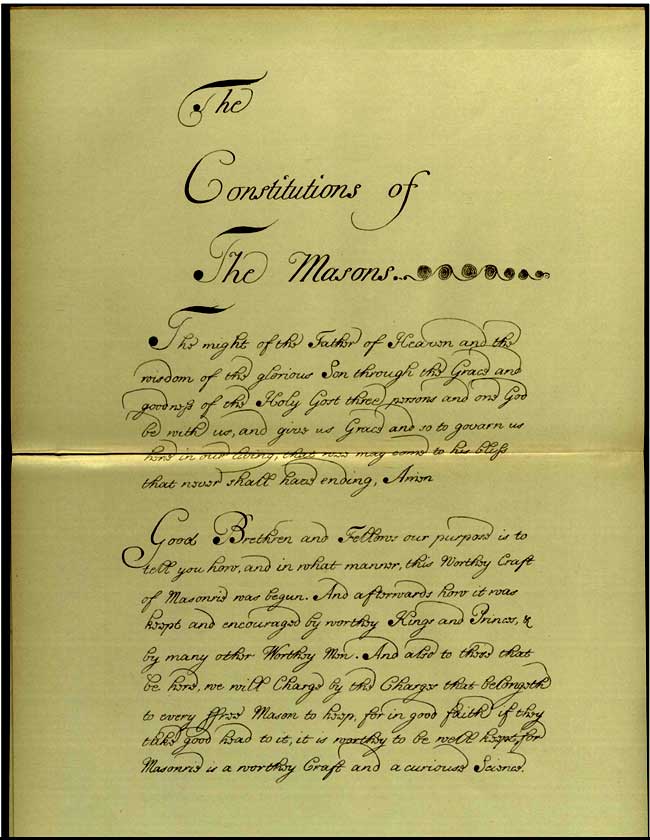 The
Constitutions of
The Masons..
The might of the Father of Heaven and the
wisdom of the glorious Son through the Grace and
goodness of the Holy Gost three persons and one God
be with us, and give us Grace and so to govarn us
here in our living, that wee may come to his bliss
that never shall have ending, Amen
Good Brethren and Fellows our purpose is to
tell you how, and in what manner, this Worthey Craft
of Masonrie was begun. And afterwards how it was
keept and encouraged by worthey Kings and Princes, &
by many other Worthey Men. And also to those that
be here, we will Charge by the Charges that belongeth
to every ffree Mason to keep, for in good faith if they
take good head to it, it is worthey to be well keept, for
Masonrie is a worthey Craft and a curiouse Science.